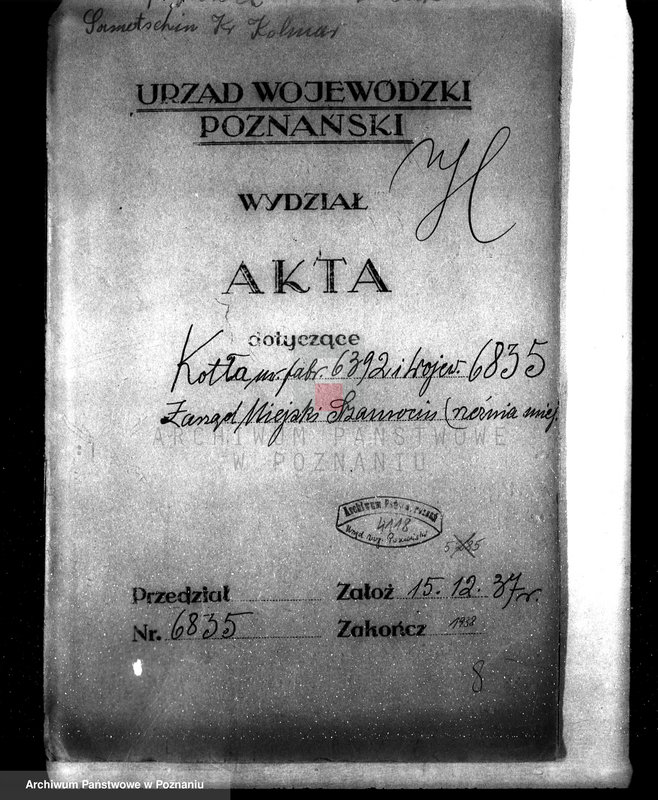 Sametschin Kr Kolmar
URZĄD WOJEWÓDZKI
POZNAŃSKI
H
WYDZIAŁ
AKTA
dotyczące
Kotła, nr. fabr. 6392 i Wojew. 6835
Zarząd Miejski Szamocin (rzeźnia miej.
ARCHIWUM PAŃSTWOWE
W POZNANIU
Archiwum Państw. Poznań
4118
Urząd Woj. Poznański
Przedział
Założ 15. 12. 37 r.
Nr. 6835
Zakończ 1938
8
Archiwum Państwowe w Poznaniu